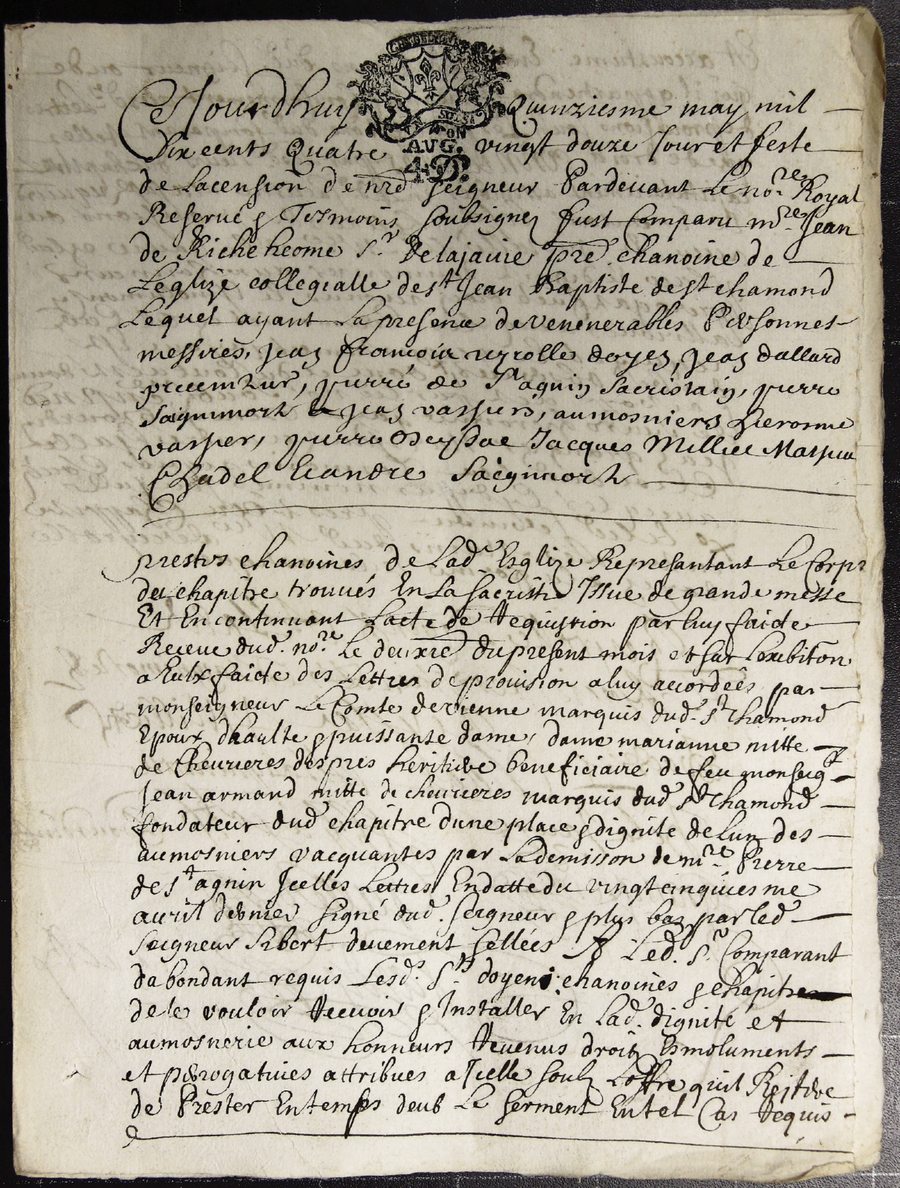 Ce Jourdhuy Quinziesme may mil
Six cents Quatre vingt douze Jour et feste
AUG. 4 D.
de Lacension de nrē seigneur Pardevant Le nore Royal
Reservé & Tesmoins soubsignez fust Comparu mre Jean
de Richeheome Sr. Delajavie pre chanoine de
Leglize collegialle de st Jean Baptiste de st chamond
Lequel ayant La presence de venenerables Personnes
messires, jean francois uzrolle doyen, jean dallard
precenteur, pierre de St agnin Sacristain, pierre
Saignimorte & jean vassier, aumosniers hierosme
vassier, pierre Jacques Millier
Chadel Leandre Saignimorte
prestres chanoines de Lade Esglize Representant Le Corps
du chapitre trouvés En La sacristie Issue de grande messe
Et En continuant Lacte de Requisition par luy faicte
Receue dud. nore Le deuxie du present mois et sur Lexibition
a Eulx faicte des Lettres de provision a luy accordeés par
monseigneur Le Comte de vienne marquis dud. St Chamond
Epoux dhaulte & puissante dame, dame marianne mitte
de Chevrieres despres heritiere beneficiaire de feu monseigr
Jean armand mitte de chevrieres marquis dud. St Chamond
fondateur dud chapitre dune place & dignite de Lun des
aumosniers vacquantes par La demisson de mre Pierre
de St agnin Jcelles Lettres En datte du vingt cinquiesme
avril dernier signé dud. seigneur & plus bas par led.
seigneur Sibert deuement sellées Led. Sr. Comparant
dabondant requis Lesds. Srs doyen chanoines & chapitre
de le vouloir Recevoir & Installer En Lad. dignité et
aumosnerie aux honneurs Revenus droitz Esmoluments
et prerogatives attribues a Jcelle soubz Loffre quil Reitere
de Prester En temps deub Le serment En tel Cas Requis